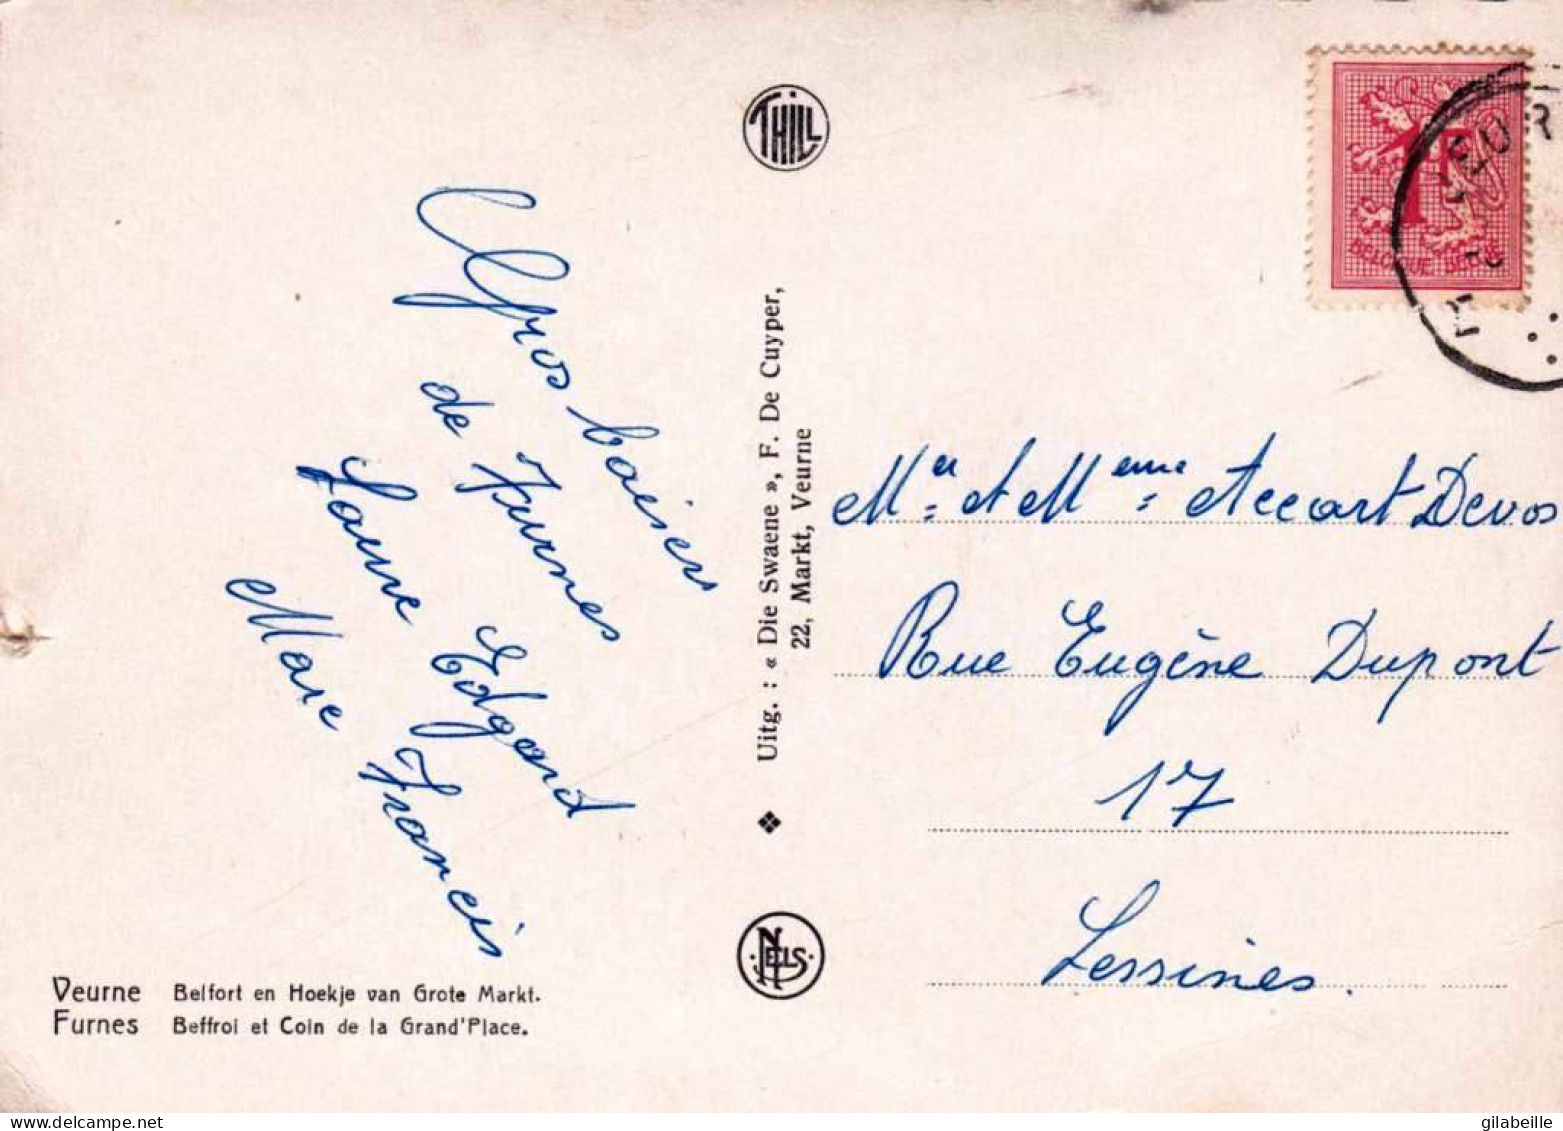 THILL
Gros baisers
de Furnes
Laure Edgard
Marc Francis
Uitg. : « Die Swaene », F. De Cuyper,
22, Markt, Veurne
NELS
Veurne Belfort en Hoekje van Grote Markt.
Furnes Beffroi et Coin de la Grand'Place.
1F
BELGIQUE BELGIE
Mr et Mme Accart Devos
Rue Eugène Dupont
17
Lessines.
delcampe.net
gilabeille